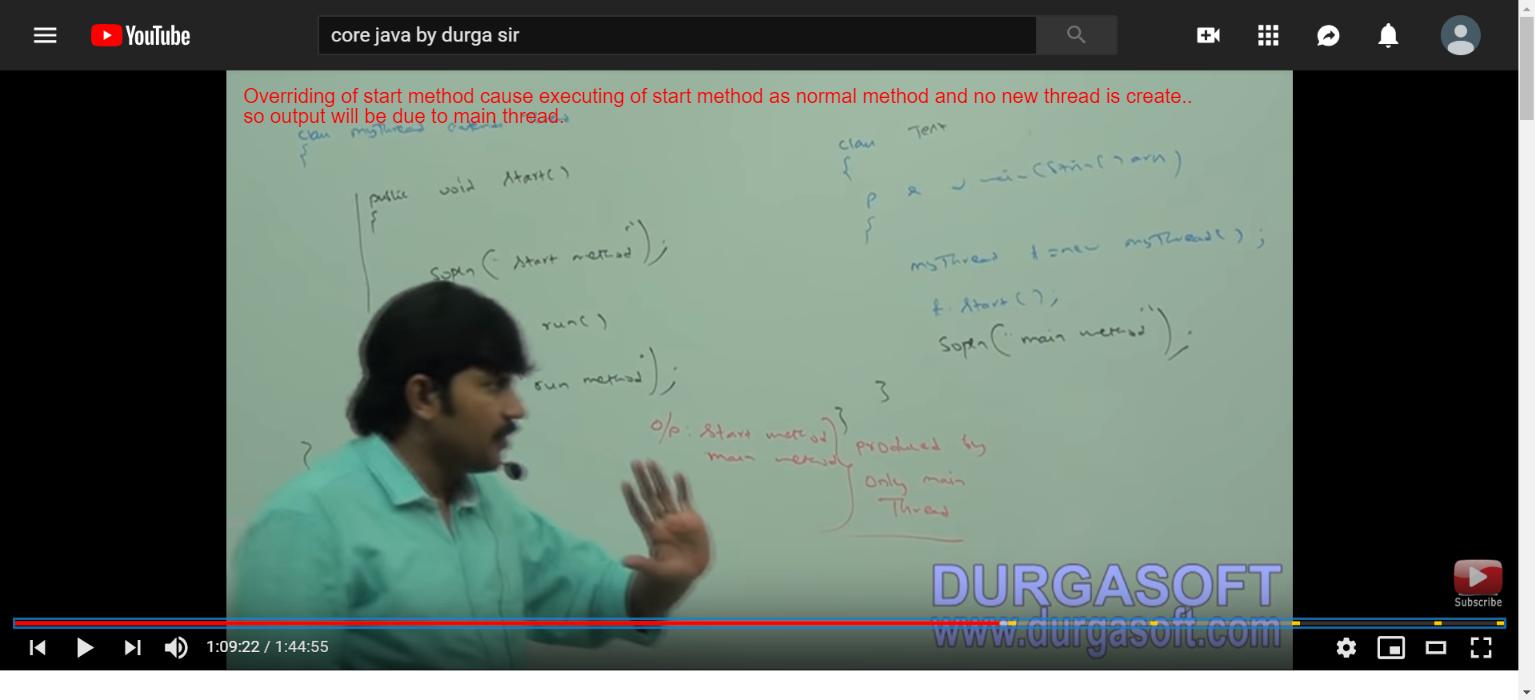 YouTube
core java by durga sir
Overriding of start method cause executing of start method as normal method and no new thread is create..
so output will be due to main thread.
class myThread extends
{
public void start()
{
sopln("start method");
run()
run method");
}
class Test
{
p s v main(String[] args)
{
myThread t = new myThread();
t.start();
sopln("main method");
}
}
o/p: start method
main method
produced by
only main
Thread
DURGASOFT
www.durgasoft.com
Subscribe
1:09:22 / 1:44:55